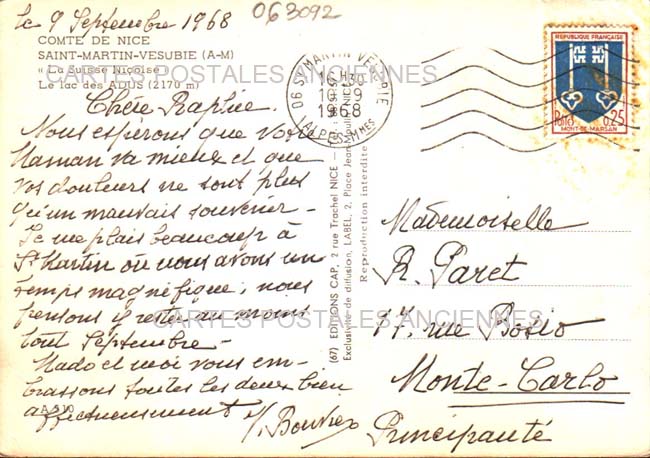 le 9 Septembre 1968
063092
COMTE DE NICE
SAINT-MARTIN-VESUBIE (A-M)
« La Suisse Niçoise »
Le lac des ADUS (2170 m)
CARTES POSTALES ANCIENNES
Chère
Nous espérons que votre
Maman va mieux et que
vos douleurs ne sont plus
qu'un mauvais souvenir -
Je me plais beaucoup à
St Martin où nous avons un
temps magnifique, nous
pensons y rester au moins
tout Septembre -
Mado et moi vous em-
brassons toutes les deux bien
affectueusement
A 310
CARTES POSTALES ANCIENNES
(67) EDITIONS CAP, 2 rue Trachel NICE
Exclusivité de diffusion, LABEL, 2, Place Jean Moulin NICE
Reproduction interdite
06 ST MARTIN VESUBIE
16 H30
1968
ALPES-MMES
REPUBLIQUE FRANÇAISE
0,25
MONT-DE-MARSAN
Mademoiselle
R. Paret
17, rue Bosio
Monte-Carlo
Principauté